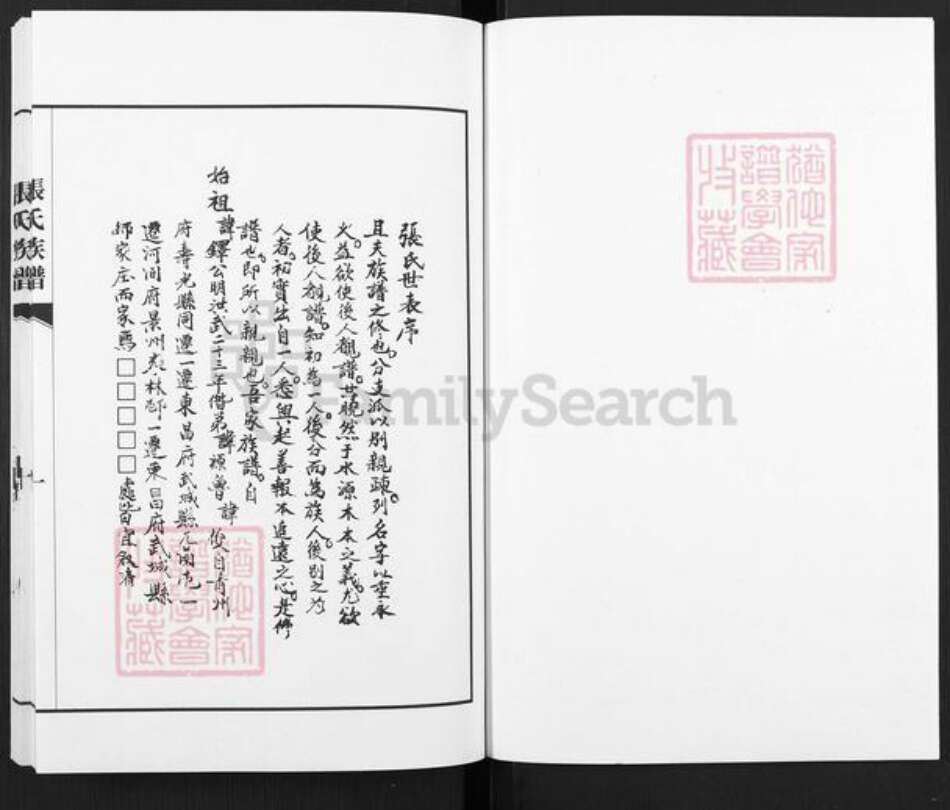 張氏世表序
且夫族譜之修也。分支派以別親疎。列名字以垂永
久。益欲使後人覩譜。世曉然于水源木本之義。尤欲
使後人觀譜。知初為一人。後分而為族人。後別之為
人者。初實出自一人。悉興起善報本追遠之心。是修
譜也。即所以親親也。吾家族譜。自
始祖諱鐸公明洪武二十三年偕弟諱禎魯諱俊自青州
府壽光縣同遷一遷東昌府武城縣屯一
遷河間府景州林一遷東昌府武城縣
家庄而家焉□□□□□處皆宜叙清
張氏族譜
一
猶他家
譜學會
收藏
猶他家
譜學會
收藏
FamilySearch